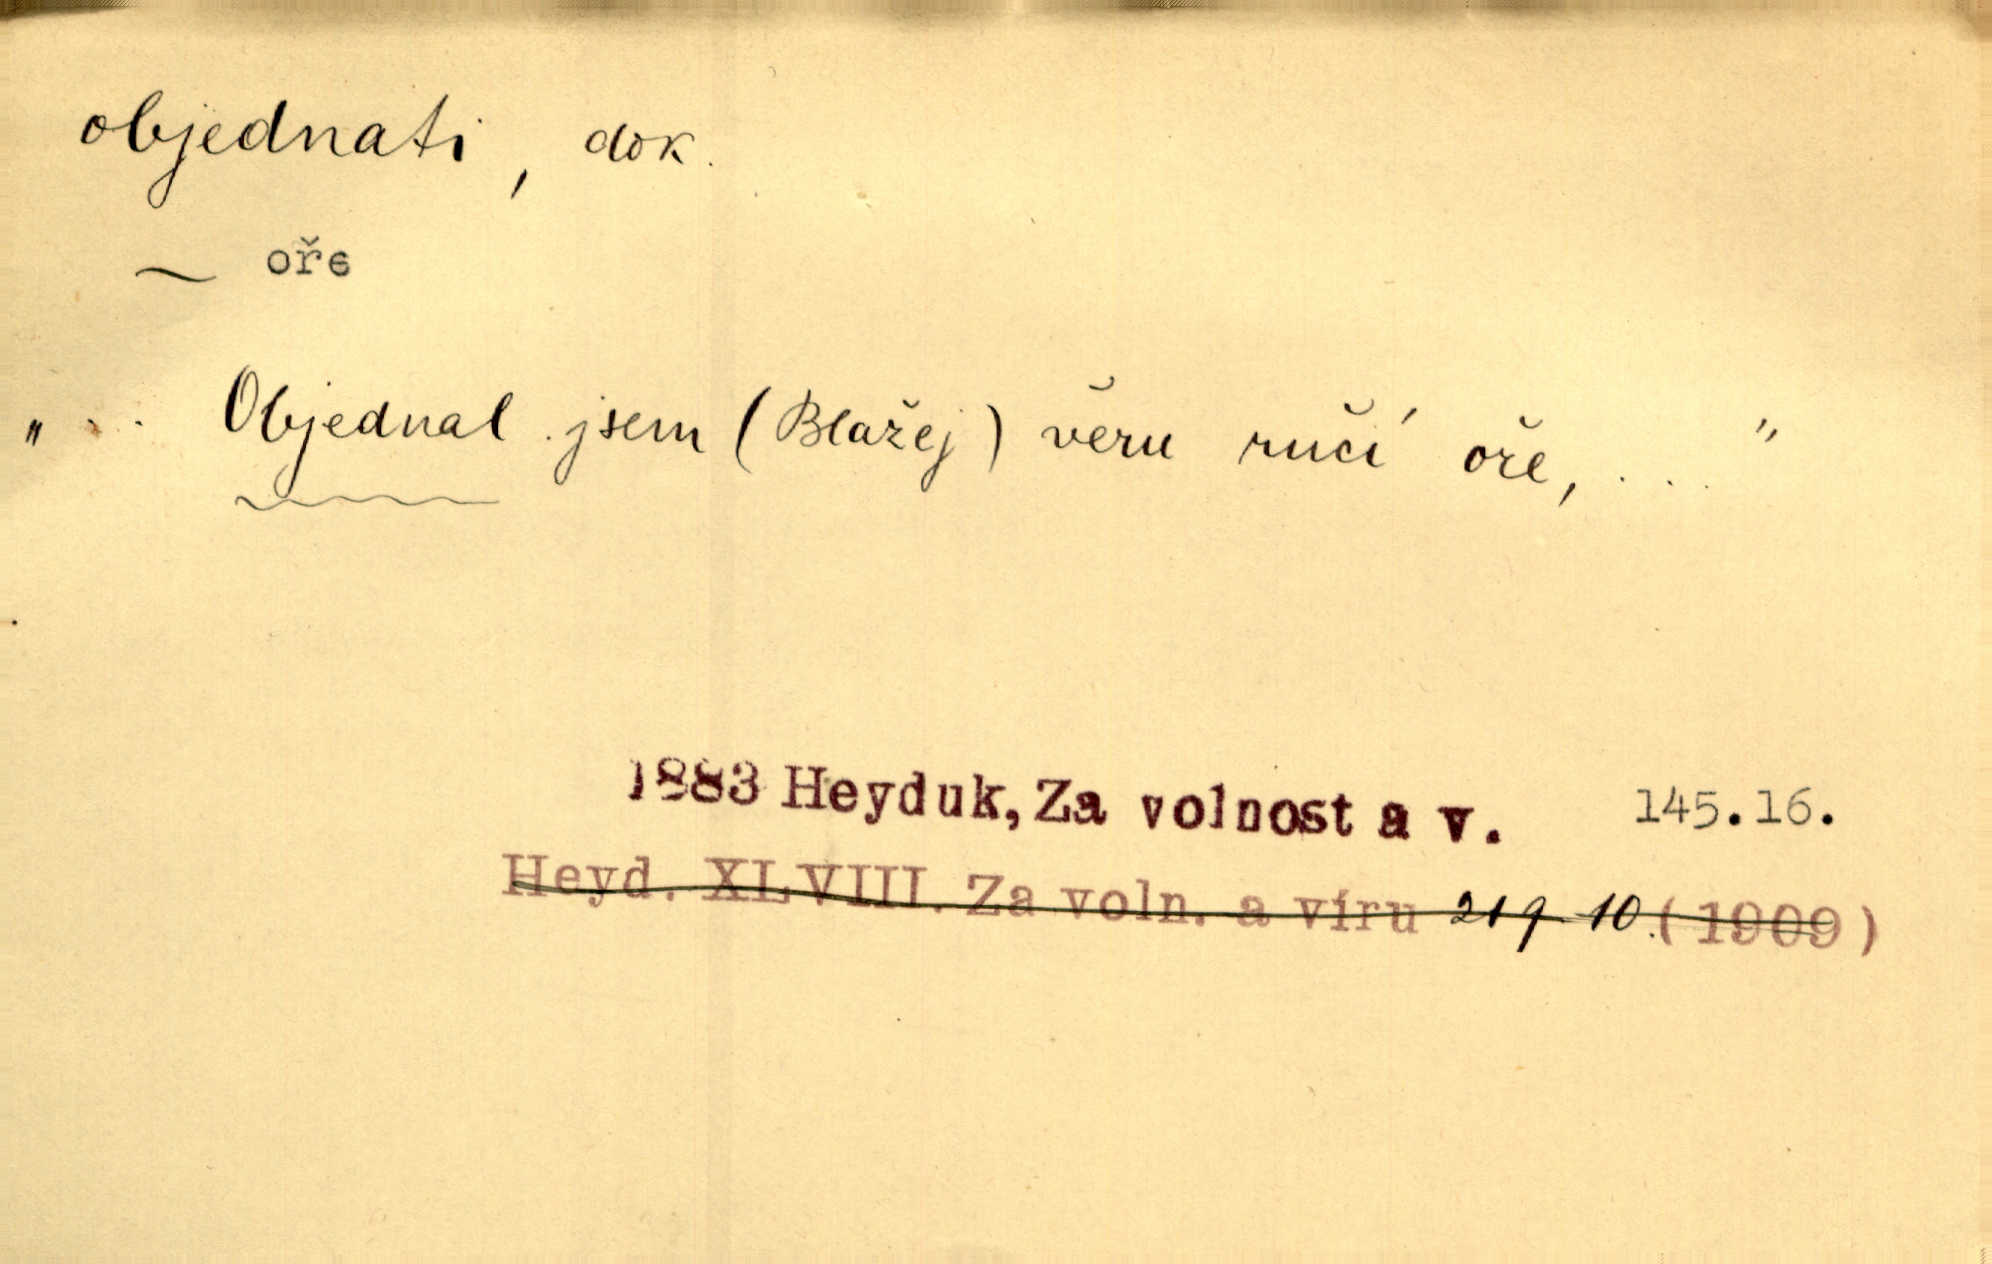 objednati, dok.
~ oře
„ ... Objednal jsem (Blažej) věru ručí oře, ... "
1883 Heyduk, Za volnost a v. 145.16.
Heyd. XLVIII. Za voln. a víru 219 10. (1909)